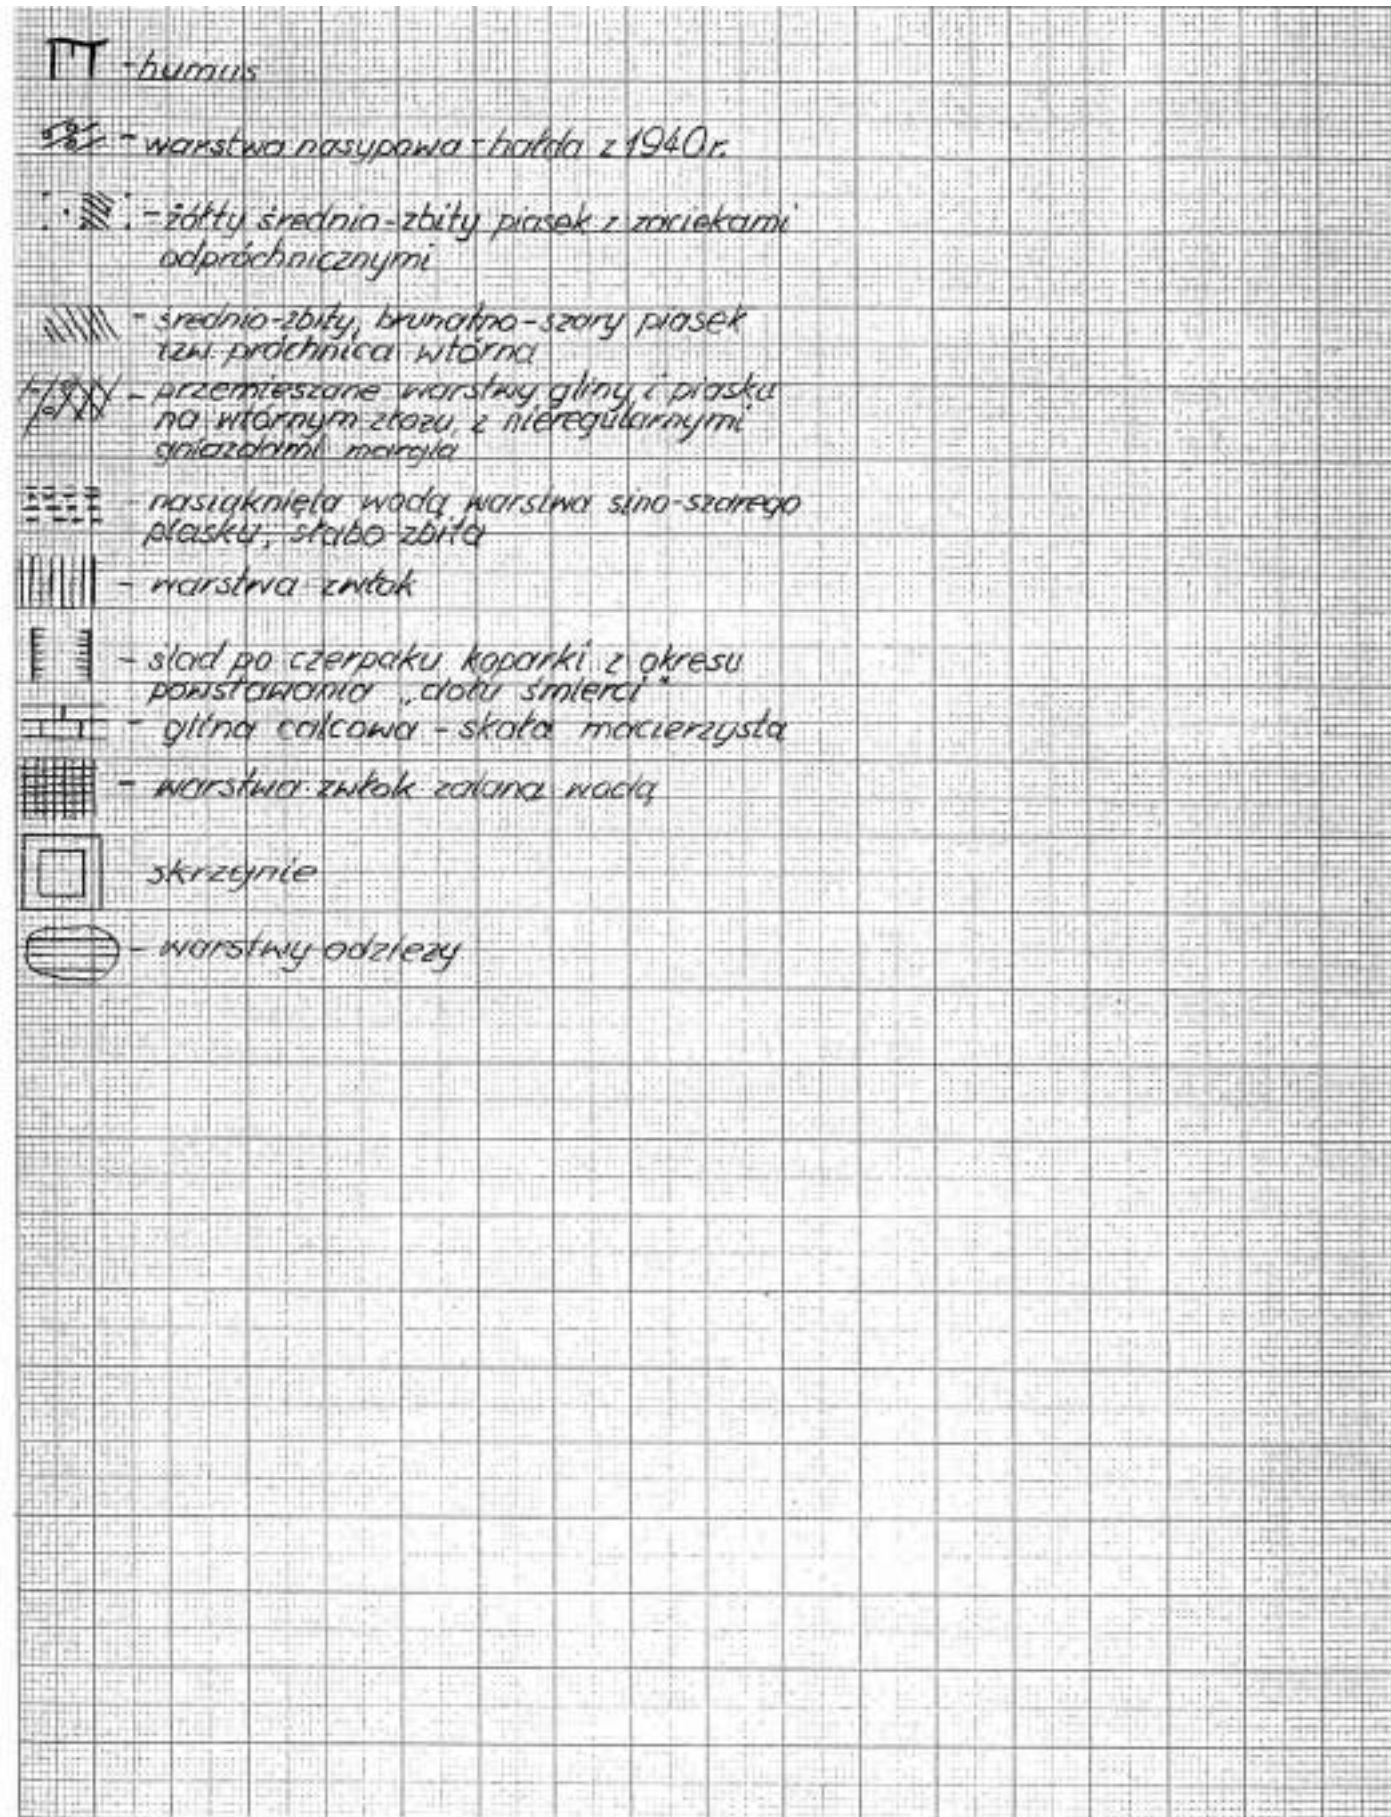 - humus
- warstwa nasypowa - hałda z 1940 r.
- żółty średnio-zbity piasek z zaciekami
odpróchnicznymi
- średnio-zbity, brunatno-szary piasek
tzw. próchnica wtórna
- przemieszane warstwy gliny i piasku
na wtórnym złożu, z nieregularnymi
gniazdami margla
- nasiąknięta wodą warstwa sino-szarego
piasku, słabo zbita
- warstwa zwłok
- ślad po czerpaku koparki z okresu
powstawania „dołu śmierci"
- glina calcowa - skała macierzysta
- warstwa zwłok zalana wodą
skrzynie
- warstwy odzieży